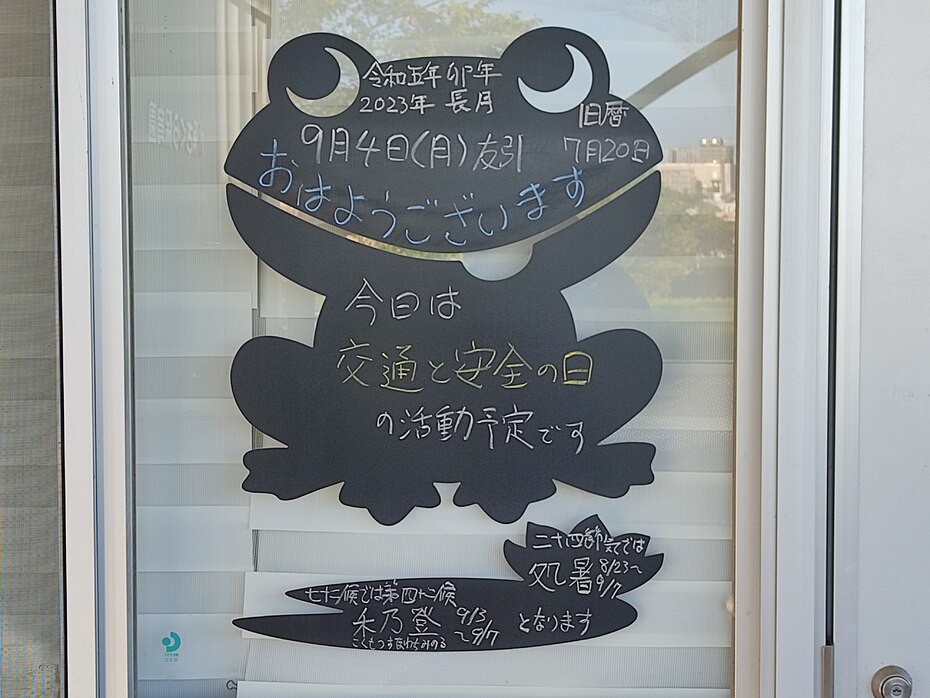 令和五年 卯年
2023年 長月
旧暦
9月4日(月)友引
7月20日
おはようございます
今日は
交通と安全の日
の活動予定です
二十四節気では
処暑 8/23〜
9/7
七十二候では第四十二候
禾乃登 9/3
〜9/7
となります
こくもつすなわちみのる